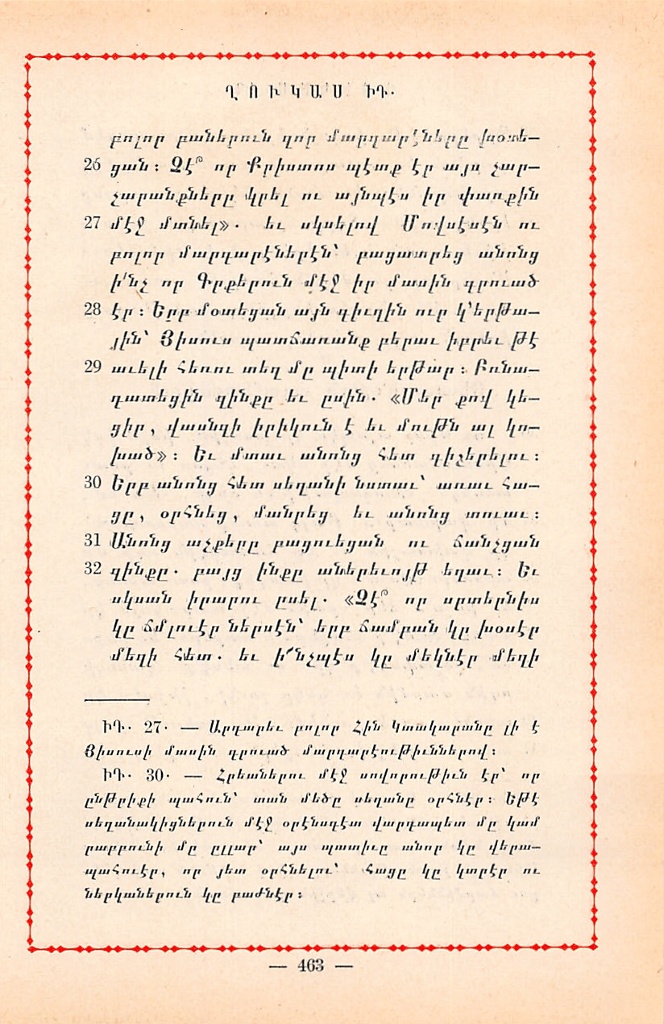 ՂՈՒԿԱՍ ԻԴ.
բոլոր բաներուն զոր մարգարէները խօսե-
26 ցան: Չէ՞ որ Քրիստոս պէտք էր այս չար-
չարանքները կրել ու այնպէս իր փառքին
27 մէջ մտնել». եւ սկսելով Մովսէսէն ու
բոլոր մարգարէներէն՝ բացատրեց անոնց
ի՛նչ որ Գրքերուն մէջ իր մասին գրուած
28 էր: Երբ մօտեցան այն գիւղին ուր կ՚երթա-
յին՝ Յիսուս պատճառանք բերաւ իբրեւ թէ
29 աւելի հեռու տեղ մը պիտի երթար: Բռնա-
դատեցին զինքը եւ ըսին. «Մեր քով կե-
ցիր, վասնզի իրիկուն է եւ մութն ալ կո-
խած»: Եւ մտաւ անոնց հետ գիշերելու:
30 Երբ անոնց հետ սեղանի նստաւ՝ առաւ հա-
ցը, օրհնեց, մանրեց եւ անոնց տուաւ:
31 Անոնց աչքերը բացուեցան ու ճանչցան
32 զինքը. բայց ինքը աներեւոյթ եղաւ: Եւ
սկսան իրարու ըսել. «Չէ՞ որ սրտերնիս
կը ճմլուէր ներսէն՝ երբ ճամբան կը խօսէր
մեզի հետ. եւ ի՜նչպէս կը մեկնէր մեզի
ԻԴ. 27. — Արդարեւ բոլոր Հին Կտակարանը լի է
Յիսուսի մասին գրուած մարգարէութիւններով:
ԻԴ. 30. — Հրեաներու մէջ սովորութիւն էր՝ որ
ընթրիքի պահուն՝ տան մեծը սեղանը օրհնէր: Եթէ
սեղանակիցներուն մէջ օրէնսգէտ վարդապետ մը կամ
րաբբունի մը ըլլար՝ այս պատիւը անոր կը վերա-
պահուէր, որ յետ օրհնելու՝ հացը կը կտրէր ու
ներկաներուն կը բաժնէր:
— 463 —